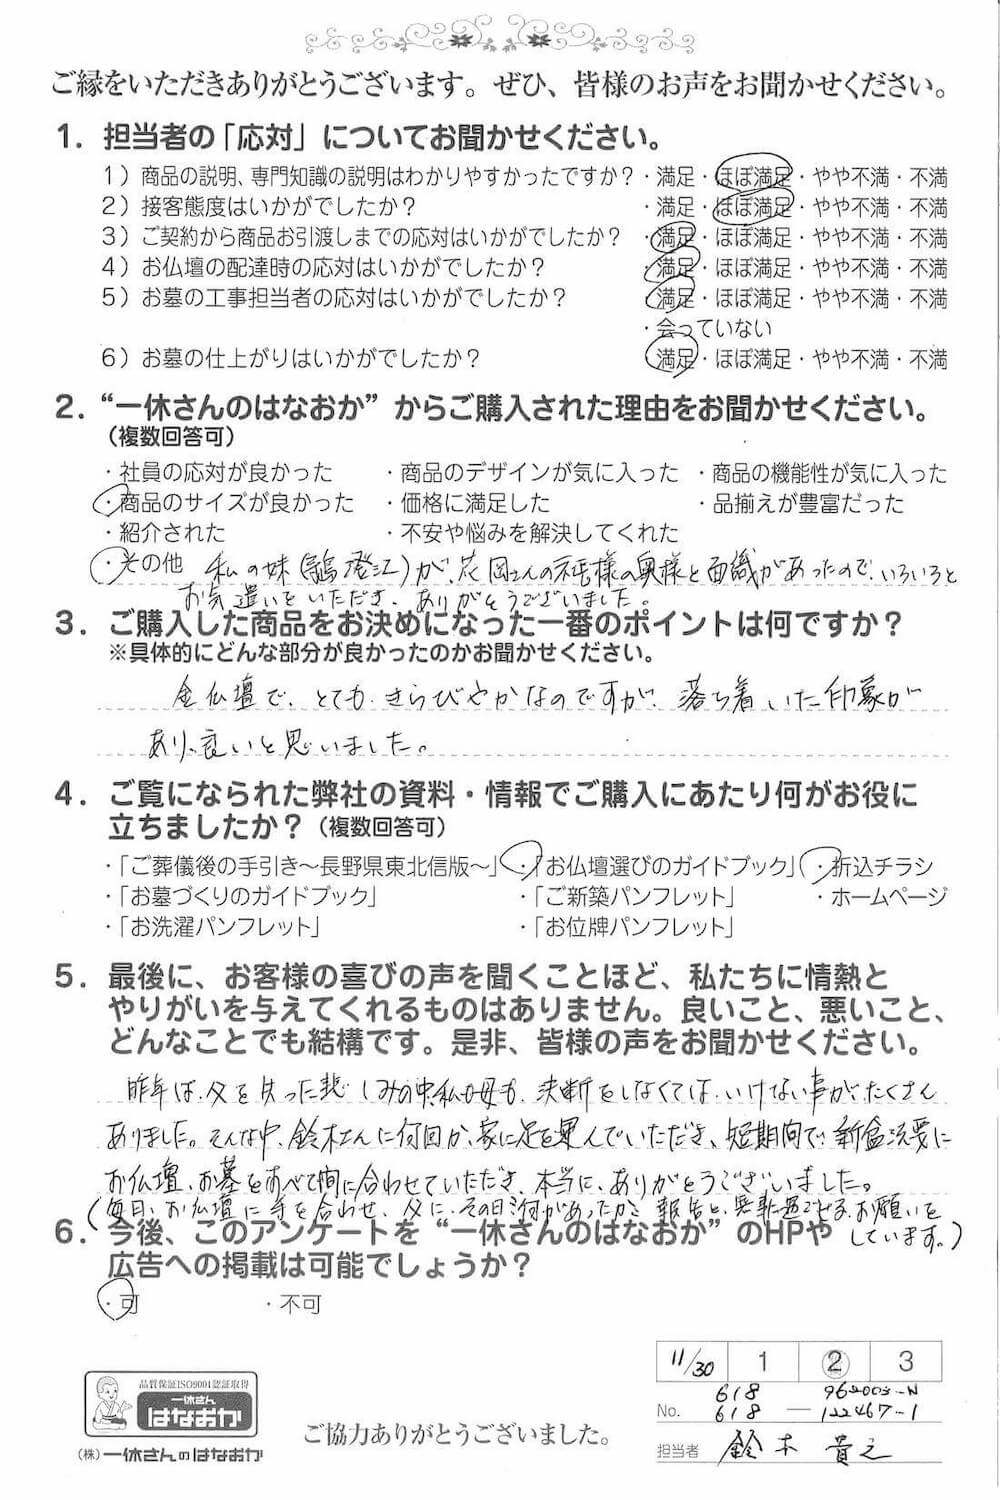 ご縁をいただきありがとうございます。ぜひ、皆様のお声をお聞かせください。
1. 担当者の「応対」についてお聞かせください。
1）商品の説明、専門知識の説明はわかりやすかったですか？ ・満足・ほぼ満足・やや不満・不満
2）接客態度はいかがでしたか？ ・満足・ほぼ満足・やや不満・不満
3）ご契約から商品お引渡しまでの応対はいかがでしたか？ ・満足・ほぼ満足・やや不満・不満
4）お仏壇の配達時の応対はいかがでしたか？ ・満足・ほぼ満足・やや不満・不満
5）お墓の工事担当者の応対はいかがでしたか？ ・満足・ほぼ満足・やや不満・不満
・会っていない
6）お墓の仕上がりはいかがでしたか？ ・満足・ほぼ満足・やや不満・不満
2. “一休さんのはなおか”からご購入された理由をお聞かせください。
（複数回答可）
・社員の応対が良かった ・商品のデザインが気に入った ・商品の機能性が気に入った
・商品のサイズが良かった ・価格に満足した ・品揃えが豊富だった
・紹介された ・不安や悩みを解決してくれた
・その他 私の妹(澄江)が、花岡さんの様の奥様と面識があったので、いろいろと
お気遣いをいただき、ありがとうございました。
3. ご購入した商品をお決めになった一番のポイントは何ですか？
※具体的にどんな部分が良かったのかお聞かせください。
金仏壇で、とても、きらびやかなのですが、落ち着いた印象が
あり、良いと思いました。
4. ご覧になられた弊社の資料・情報でご購入にあたり何がお役に
立ちましたか？（複数回答可）
・「ご葬儀後の手引き〜長野県東北信版〜」 ・「お仏壇選びのガイドブック」 ・折込チラシ
・「お墓づくりのガイドブック」 ・「ご新築パンフレット」 ・ホームページ
・「お洗濯パンフレット」 ・「お位牌パンフレット」
5. 最後に、お客様の喜びの声を聞くことほど、私たちに情熱と
やりがいを与えてくれるものはありません。良いこと、悪いこと、
どんなことでも結構です。是非、皆様の声をお聞かせください。
昨年は、父を失った悲しみの中、私も母も、決断をしなくてはいけない事がたくさん
ありました。そんな中、鈴木さんに何回か、家に足を運んでいただき、短期間で、新盆法要に
お仏壇、お墓をすべて間に合わせていただき、本当に、ありがとうございました。
(毎日、お仏壇に手を合わせ、父に、その日何があったか、報告と、無事過ごせる、お願いを
しています。)
6. 今後、このアンケートを“一休さんのはなおか”のHPや
広告への掲載は可能でしょうか？
・可 ・不可
11/30 1 2 3
618 962003-N
No. 618 — 122467-1
担当者 鈴木 貴之
品質保証ISO9001認証取得
一休さん
はなおか
(株)一休さんのはなおか
ご協力ありがとうございました。